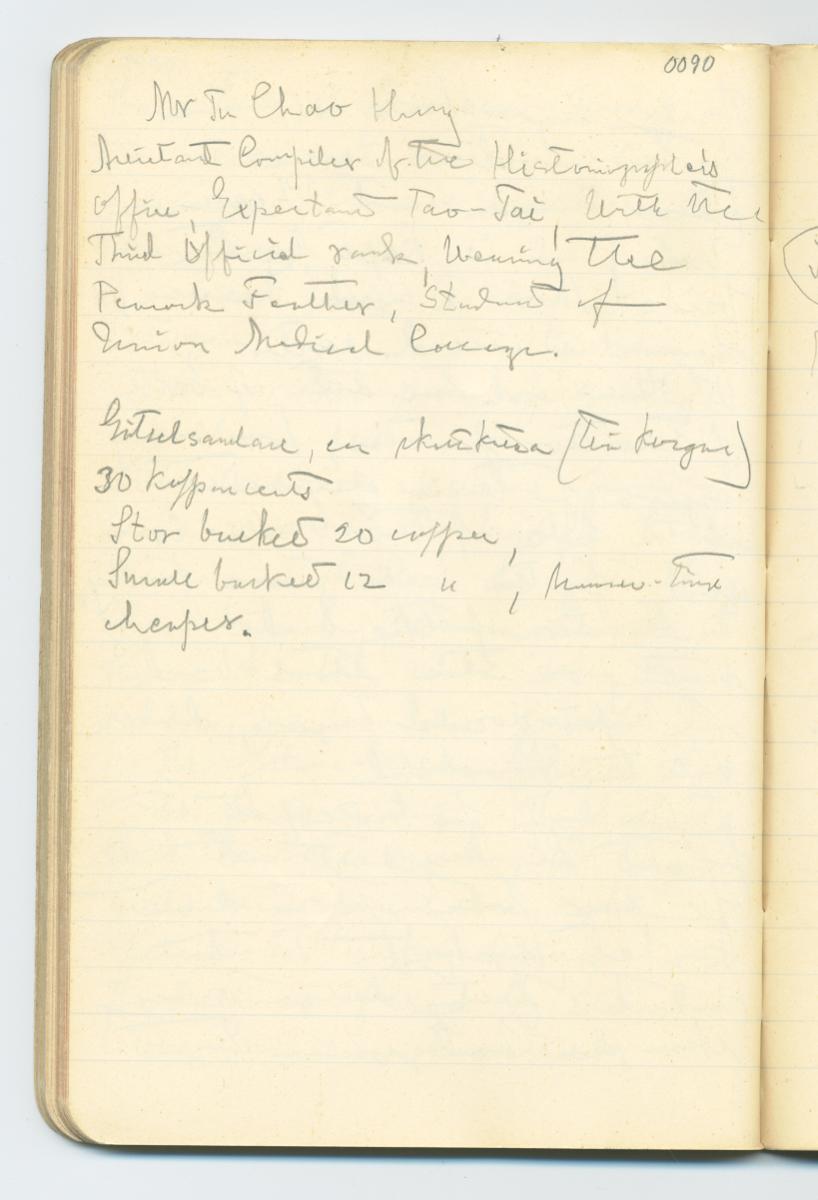 0090
Mr Tu Chao Hung
Assistant Compiler of the Historiographers
office, Expectant Tao-Tai, With the
Third Official rank, Wearing The
Peacock Feather, Student of
Union Medical College.
en (två korgar)
30 kopparcents
Stor basket 20 copper,
Small basket 12 " ,
cheaper.